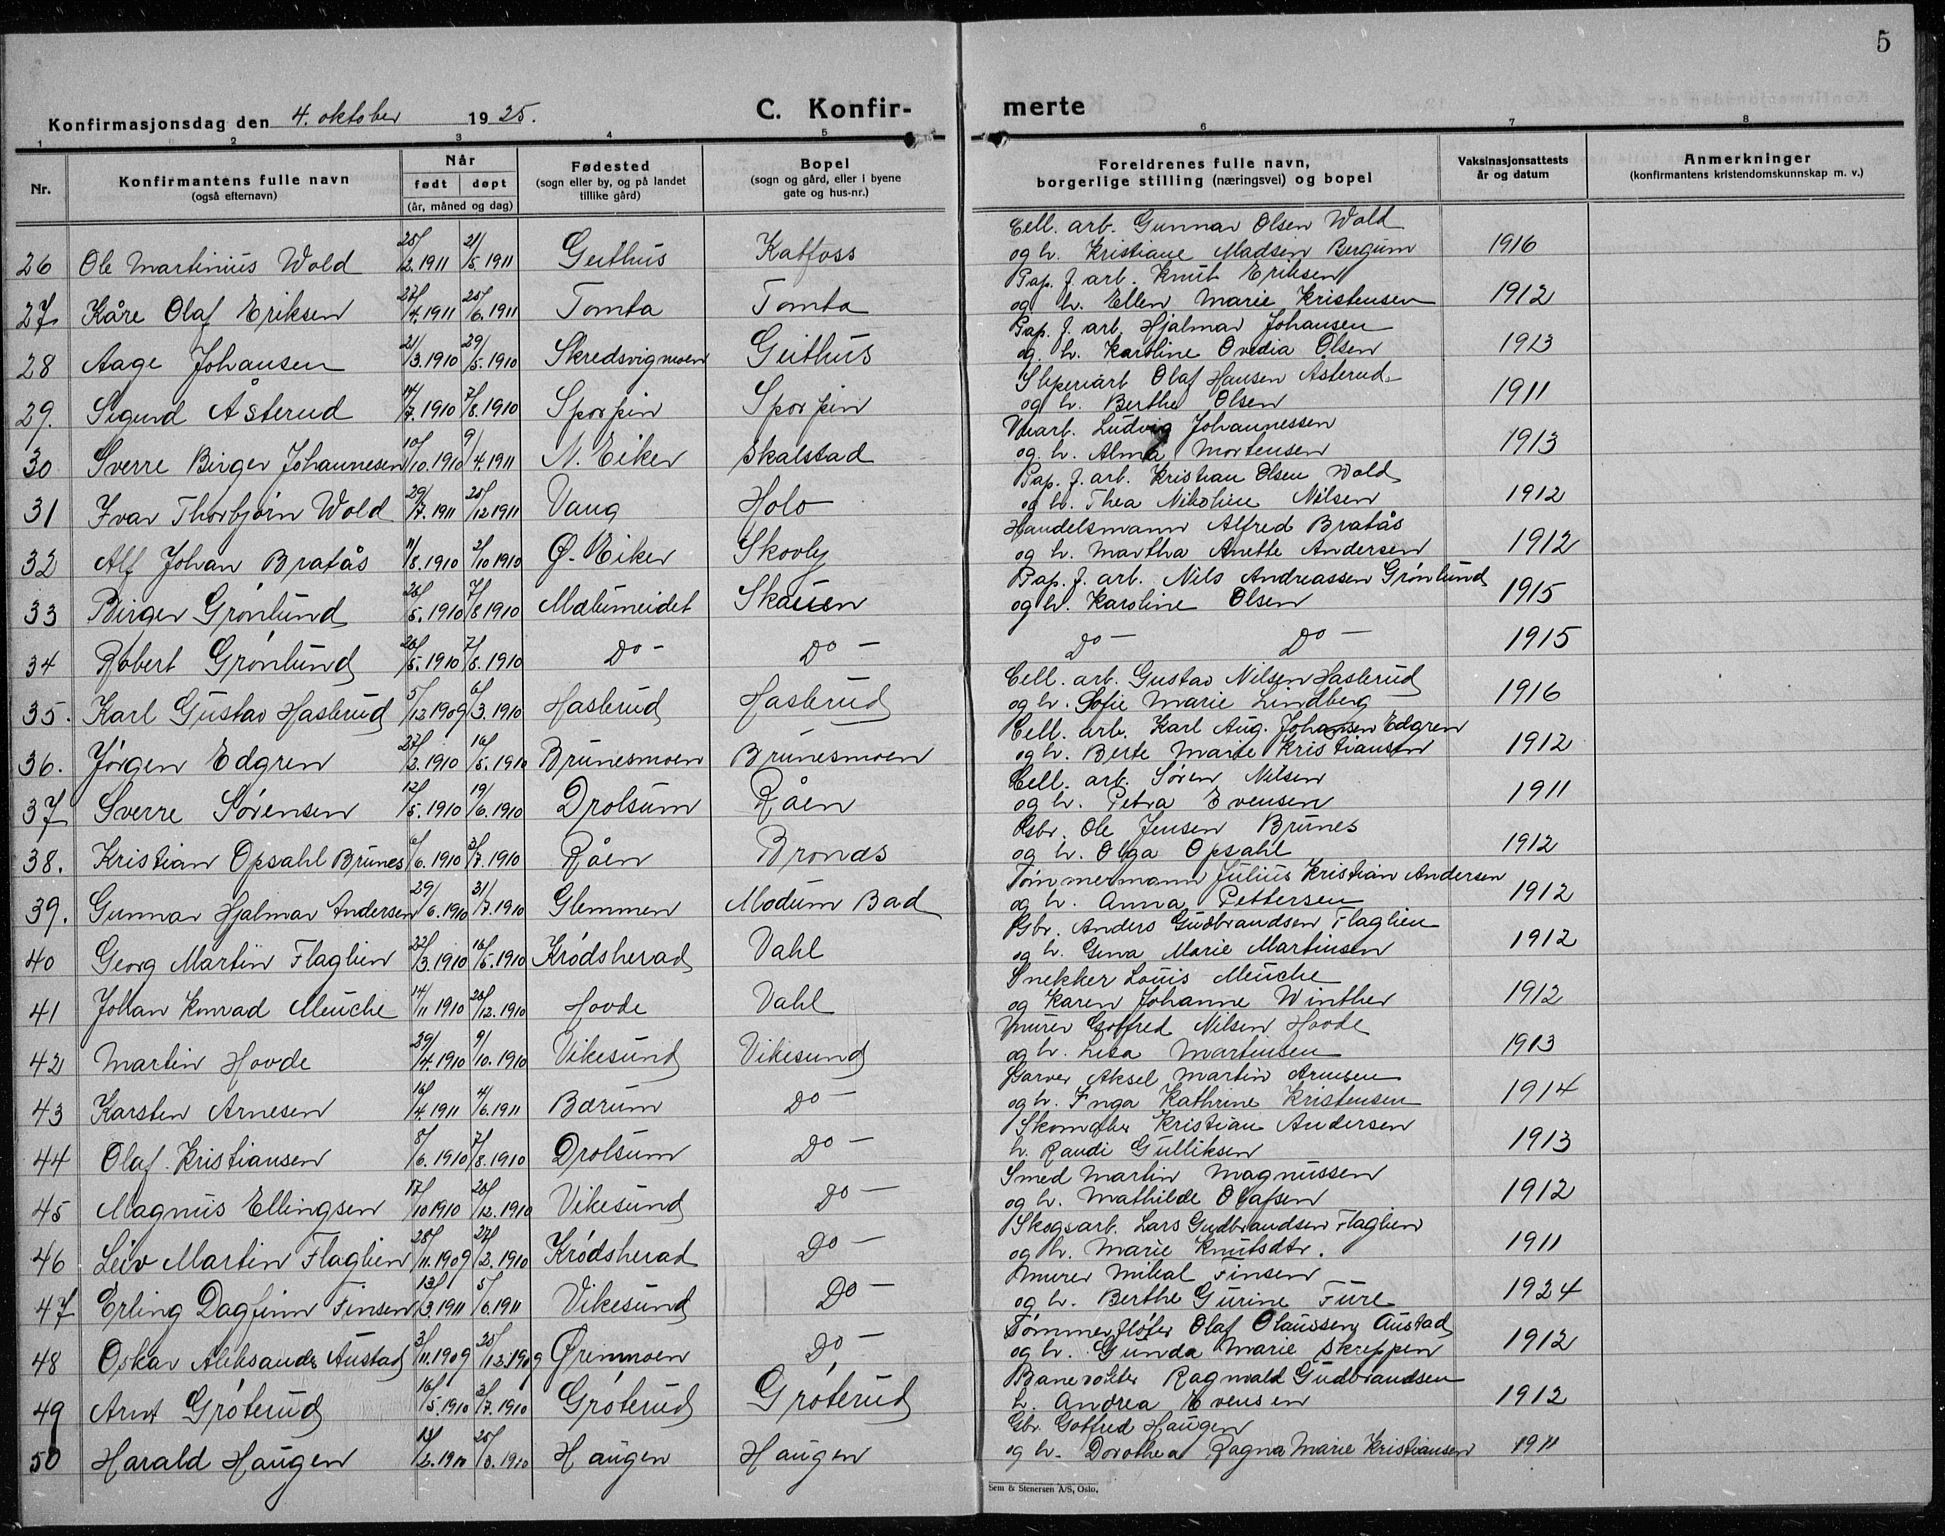 5
Konfirmasjonsdag den 4. oktober 1925.
C. Konfir- merte
1 2 3 4 5 6 7 8
Nr.
Konfirmantens fulle navn
(også efternavn)
Når
født døpt
(år, måned og dag)
Fødested
(sogn eller by, og på landet
tillike gård)
Bopel
(sogn og gård, eller i byene
gate og hus-nr.)
Foreldrenes fulle navn,
borgerlige stilling (næringsvei) og bopel
Vaksinasjonsattests
år og datum
Anmerkninger
(konfirmantens kristendomskunnskap m. v.)
Cell. arb. Gunnar Olsen Wold
26 Ole Martinius Wold 25/2.1911 21/5.1911 Geithus Katfoss og h. Kristiane Madsen Bergum 1916
Pap. f. arb. Knut Eriksen
27 Kåre Olaf Eriksen 27/4.1911 25/6.1911 Tomta Tomta og h. Ellen Marie Kristensen 1912
Pap. f. arb. Hjalmar Johansen
28 Aage Johansen 21/3.1910 29/5.1910 Skredsvigmoen Geithus og h. Karoline Ovedia Olsen 1913
Sliperiarb Olaf Hansen Åsterud
29. Sigurd Åsterud 14/7.1910 7/8.1910 Sporpin Sporpin og h. Berthe Olsen 1911
Ludvig Johannessen
30 Sverre Birger Johannesen 10/10.1910 9/4.1911 N. Eiker Skalstad og h. Alma Mortensen 1913
Pap. f. arb. Kristian Olsen Wold
31 Ivar Thorbjørn Wold 29/7.1911 25/12 1911 Vang Holo og h. Thea Nikoline Nilsen 1912
Handelsmann Alfred Bratås
32 Alf Johan Bratås 11/8.1910 2/10 1910 Ø. Eiker Skovly og h. Martha Anette Andersen 1912
Pap. f. arb. Nils Andreassen Grønlund
33 Birger Grønlund 26/5.1910 7/8 1910 Mælumeidet Skauen og h. Karoline Olsen 1915
34 Robert Grønlund 26/5.1910 7/8.1910 Do - Do - Do - Do - 1915
Cell. arb. Gustav Nilsen Haslerud
35. Karl Gustav Haslerud 5/12 1909 6/3.1910 Haslerud Haslerud og h. Sofie Marie Lindberg 1916
Cell. arb. Karl Aug. Johansen Edgren
36. Jørgen Edgren 27/2.1910 16/5.1910 Brunesmoen Brunesmoen og h. Berte Marie Kristiansen 1912
Cell. arb. Søren Nilsen
37 Sverre Sørensen 12/5.1910 19/6.1910 Drolsum Råen og h. Petra Evensen 1911
Gsbr. Ole Jensen Brunes
38. Kristian Opsahl Brunes 6/6.1910 3/7.1910 Råen Bronæs og h. Olga Opsahl 1912
Tømmermann Julius Kristian Andersen
39. Gunnar Hjalmar Andersen 29/6.1910 31/7.1910 Glemmen Modum Bad og h. Anna Pettersen 1912
Gbr. Anders Gudbrandsen Flaglien
40 Georg Martin Flaglien 22/3.1910 16/5.1910 Krødsherad Vahl og h. Gina Marie Martinsen 1912
Snekker Louis Meuche
41 Johan Konrad Meuche 14/11 1910 26/12.1910 Hovde Vahl og Karen Johanne Winther 1912
Murer Gotfred Nilsen Hovde
42 Martin Hovde 29/4.1910 9/10.1910 Vikesund Vikesund og h. Lisa Martinsen 1913
Garver Aksel Martin Arnesen
43 Karsten Arnesen 16/4.1911 4/6.1911 Bærum Do - og h. Inga Kathrine Kristensen 1914
Skomaker Kristian Andersen
44 Olaf Kristiansen 8/6.1910 7/8.1910 Drolsum Do - h. Randi Gulliksen 1913
Smed Martin Magnussen
45 Magnus Ellingsen 17/10 1910 26/12.1910 Vikesund Do - og h. Mathilde Olafsen 1912
Skogsarb. Lars Gudbrandsen Flaglien
46 Leiv Martin Flaglien 28/11.1909 27/2.1910 Krødsherad Do - og h. Marie Knutsdtr. 1911
Murer Mikal Finsen
47 Erling Dagfinn Finsen 13/3.1911 5/6.1911 Vikesund Do - og h. Berthe Gurine Fure 1924
Tømmerfløter Olaf Olaussen Austad
48 Oskar Aleksander Austad 3/11.1909 25/12.1909 Ørenmoen Do - og h. Gunda Marie Skreppen 1912
Banevokter Ragnvald Gudbrandsen
49 Arnt Grøterud 16/5.1910 3/7.1910 Grøterud Grøterud h. Andrea Evensen 1912
Gbr. Gotfred Haugen
50 Harald Haugen 13/2.1910 Haugen Haugen og h. Dorothea Ragna Marie Kristiansen 1911
Sem & Stenersen A/S, Oslo.